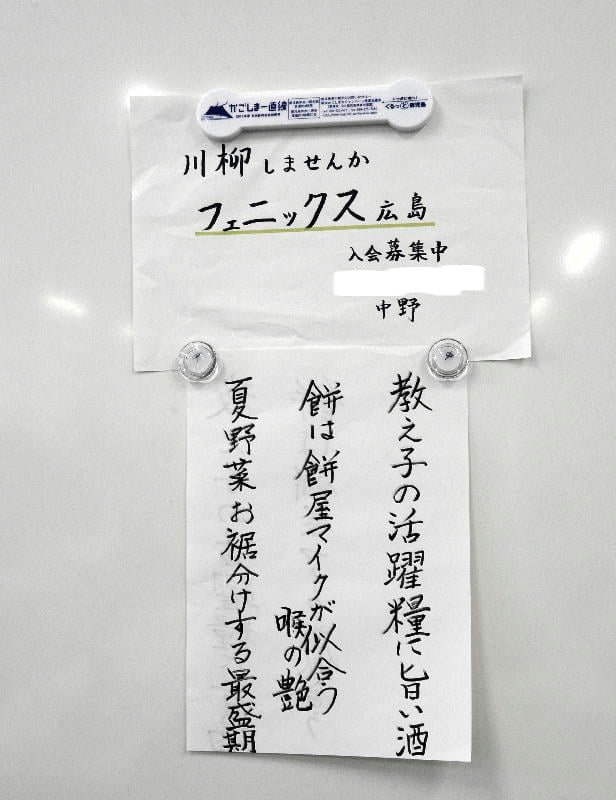 かごしま一直線
川柳しませんか
フェニックス広島
入会募集中
中野
教え子の活躍糧に旨い酒
餅は餅屋マイクが似合う
喉の艶
夏野菜お裾分けする最盛期